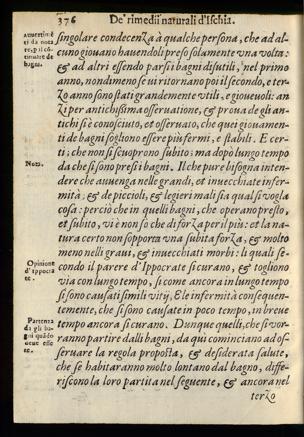 376 De' rimedii naturali d'Ischia.
singolare condecenza à qualche persona, che ad al-
cuno giouano hauendoli preso solamente vna volta:
& ad altri essendo parsi bagni disutili, nel primo
anno, nondimeno se ui ritornano poi il secondo, e ter-
zo anno sono stati grandemente vtili, e gioueuoli: an-
zi per antichissima osseruatione, & proua de gli an-
tichi si è conosciuto, et osseruato, che quei giouamen-
ti de bagni sogliono essere più fermi, e stabili. E cer-
ti; che non si scuoprono subito; ma dopò lungo tempo
da che si sono presi i bagni. Il che pure bisogna inten-
dere che auuenga nelle grandi, et inuecchiate infer-
mità; & de piccioli, & legieri mali sia qual si vogla
cosa: perciò che in quelli bagni, che operano presto,
et subito, vi è non sò che di forza per il più: et la na-
tura certo non sopporta vna subita forza, & molto
meno nelli graui, & inuecchiati morbi: li quali se-
condo il parere d'Ippocrate si curano, & togliono
via con lungo tempo, si come ancora in lungo tempo
si sono causati simili vitij. E le infermità consequen-
temente, che si sono causate in poco tempo, in breue
tempo ancora si curano. Dunque quelli, che si vor-
ranno partire dalli bagni, da qui cominciano ad os-
seruare la regola proposta, & desiderata salute,
che se habitaranno molto lontano dal bagno, diffe-
riscono la loro partita nel seguente, & ancora nel
terzo
Nota.
Opinione
d'Ippocra
te.
Partenza
da gli ba-
gni quãdo